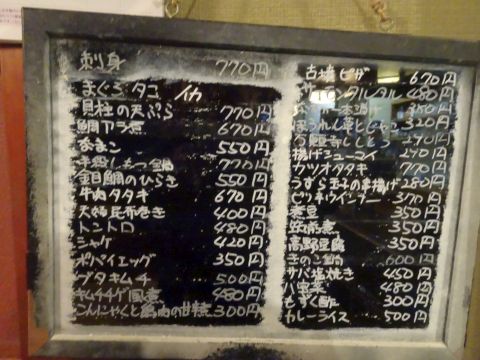 刺身 770円
まぐろ タコ イカ
貝柱の天ぷら 770円
鯛アラ煮 670円
550円
770円
金目鯛のひらき 550円
牛肉タタキ 670円
昆布巻き 400円
トントロ 480円
シャケ 420円
ポパイエッグ 350円
ブタキムチ 500円
キムチチゲ風煮 480円
こんにゃくと鶏肉の甘煮 300円
ピザ 670円
サーモンタルタル 480円
350円
ほうれん草とじゃこ 320円
270円
揚げシューマイ 270円
カツオタタキ 770円
うずら玉子の串揚げ 280円
ピリ辛ウインナー 370円
煮豆 350円
筑前煮 350円
高野豆腐 350円
きのこ鍋 600円
サバ塩焼き 450円
八宝菜 480円
もずく酢 300円
カレーライス 500円